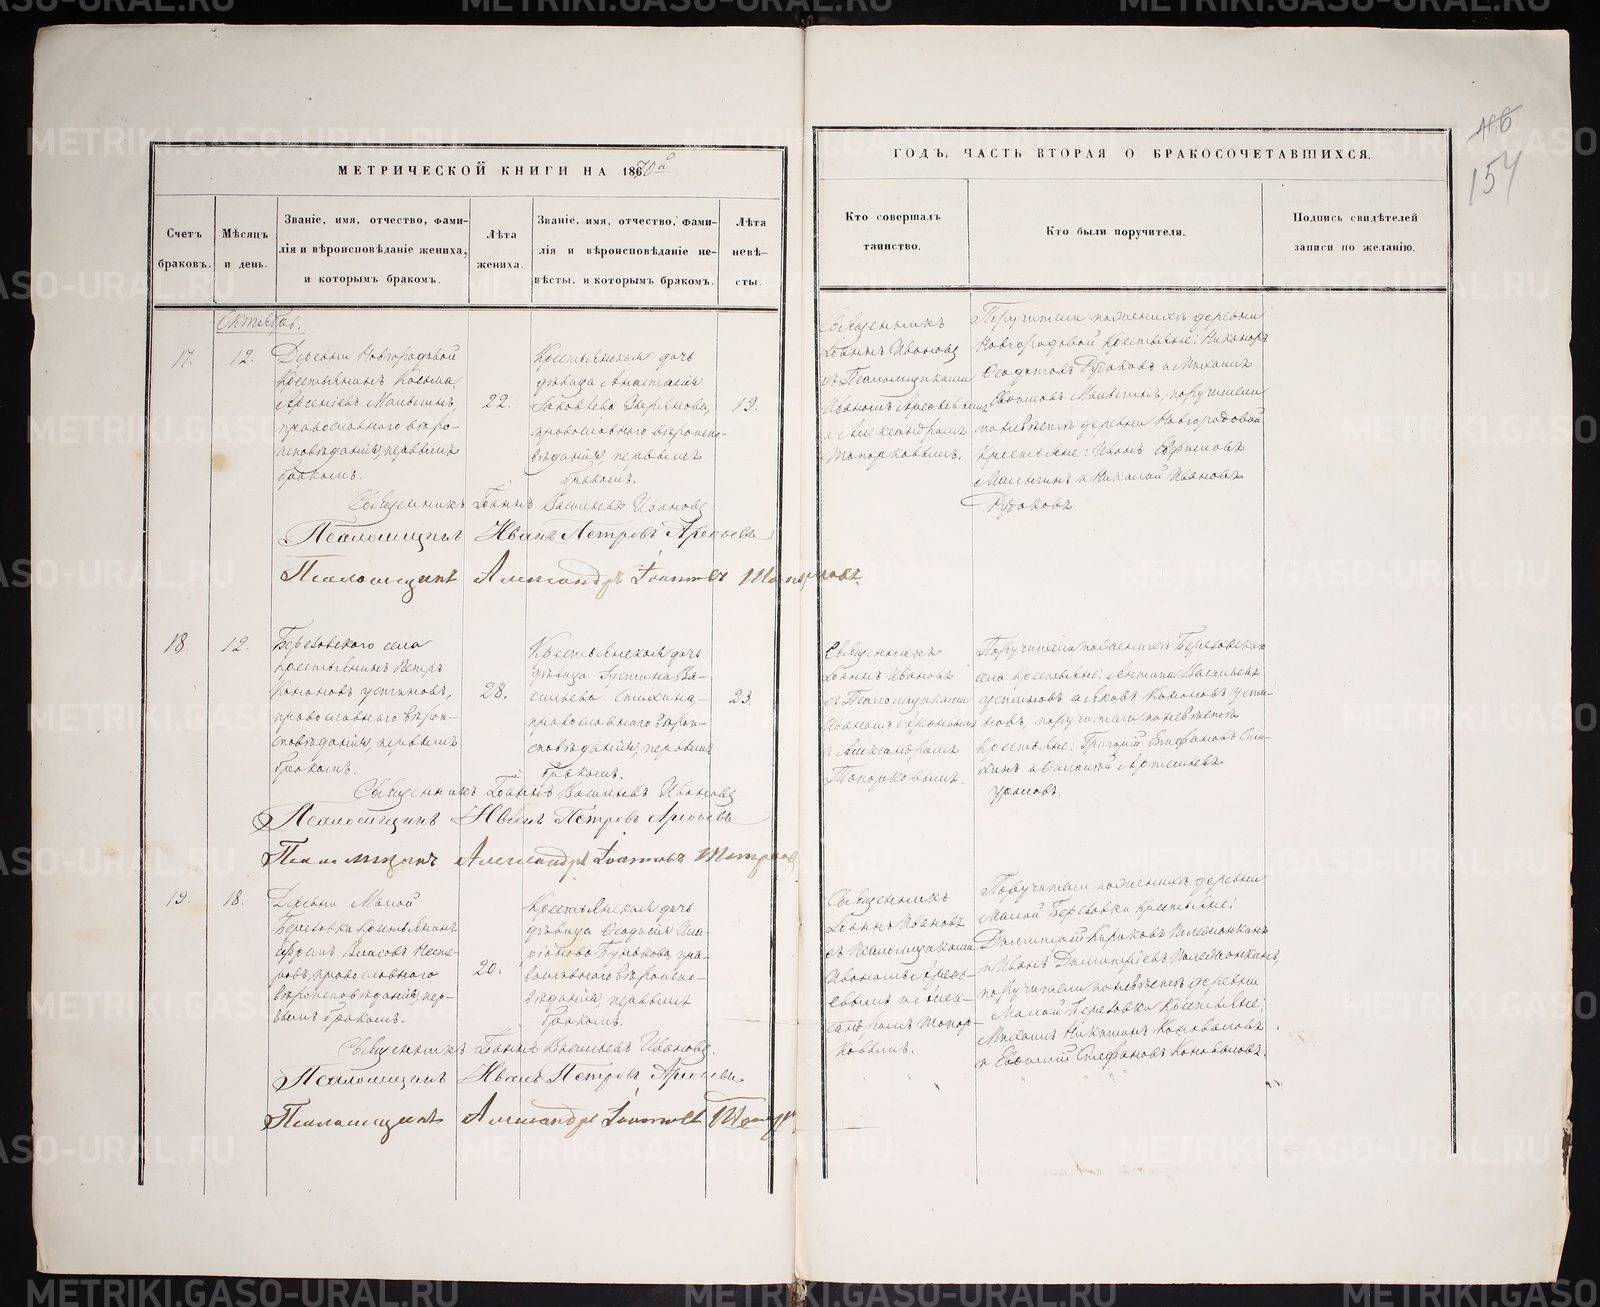 МЕТРИЧЕСКОЙ КНИГИ НА 1870й
Счетъ браковъ.
Мѣсяцъ и день.
Званіе, имя, отчество, фами-
лія и вѣроисповѣданіе жениха,
и которымъ бракомъ.
Лѣта
жениха.
Званіе, имя, отчество, фами-
лія и вѣроисповѣданіе не-
вѣсты, и которымъ бракомъ.
Лѣта
невѣ-
сты.
Октябрь.
17.
12.
Деревни Новгородовой
крестьянинъ Козьма
Арсеніевъ Малыгинъ,
православнаго вѣро-
исповѣданія, первымъ
бракомъ.
22.
Крестьянская дочь
дѣвица Анастасія
Яковлева
православнаго вѣроиспо-
вѣданія, первымъ
бракомъ.
19.
Священникъ Іоаннъ Васильевъ Ивановъ
Псаломщикъ Иванъ Петровъ Арефьевъ
Псаломщикъ Александръ Іоанновъ Топорковъ.
18
12.
Березовскаго села
крестьянинъ Петръ
Кононовъ Устиновъ,
православнаго вѣрои-
сповѣданія, первымъ
бракомъ.
28.
Крестьянская дочь
дѣвица Іустина Ва-
сильева Спихина
православнаго вѣрои-
сповѣданія, первымъ
бракомъ.
23.
Священникъ Іоаннъ Васильевъ Ивановъ
Псаломщикъ Иванъ Петровъ Арефьевъ
Псаломщикъ Александръ Іоанновъ Топорковъ
19.
18.
Деревни Малой
Березовки крестьянинъ
Власовъ Несте-
ровъ, православнаго
вѣроисповѣданія, пер-
вымъ бракомъ.
20.
Крестьянская дочь
дѣвица Ѳеодосія Ила-
ріонова Бунькова, пра-
вославнаго вѣроиспо-
вѣданія, первымъ
бракомъ.
Священникъ Іоаннъ Васильевъ Ивановъ.
Псаломщикъ Иванъ Петровъ Арефьевъ
Псаломщикъ Александръ Іоанновъ
ГОДЪ, ЧАСТЬ ВТОРАЯ О БРАКОСОЧЕТАВШИХСЯ.
116
154
Кто совершалъ
таинство.
Кто были поручители.
Подпись свидѣтелей
записи по желанію.
Священникъ
Іоаннъ Ивановъ
съ Псаломщиками
Иваномъ Арефьевымъ
и Александромъ
Топорковымъ.
Поручители по женихѣ деревни
Новгородовой крестьяне: Никаноръ
Ѳеодотовъ Рудаковъ и Михаилъ
Малыгинъ, поручители
по невѣстѣ деревни Новгородовой
крестьяне: Иванъ
Малыгинъ и Николай Ивановъ
Рудаковъ.
Священникъ
Іоаннъ Ивановъ
съ Псаломщиками
Иваномъ Арефьевымъ
и Александромъ
Топорковымъ.
Поручители по женихѣ Березовскаго
села крестьяне: Антипа Васильевъ
Устиновъ и Яковъ Кононовъ Усти-
новъ, поручители по невѣстѣ
крестьяне: Григорій Епифановъ Спи-
хинъ и Артемьевъ
Священникъ
Іоаннъ Ивановъ
съ Псаломщиками
Иваномъ Арефь-
евымъ и Алек-
сандромъ Топор-
ковымъ.
Поручители по женихѣ деревни
Малой Березовки крестьяне:
Димитрій Кириковъ
и Иванъ Димитріевъ
поручители по невѣстѣ деревни
Малой Березовки крестьяне:
Михаилъ Никитинъ Коноваловъ
и Евѳимій Стефановъ Коноваловъ.